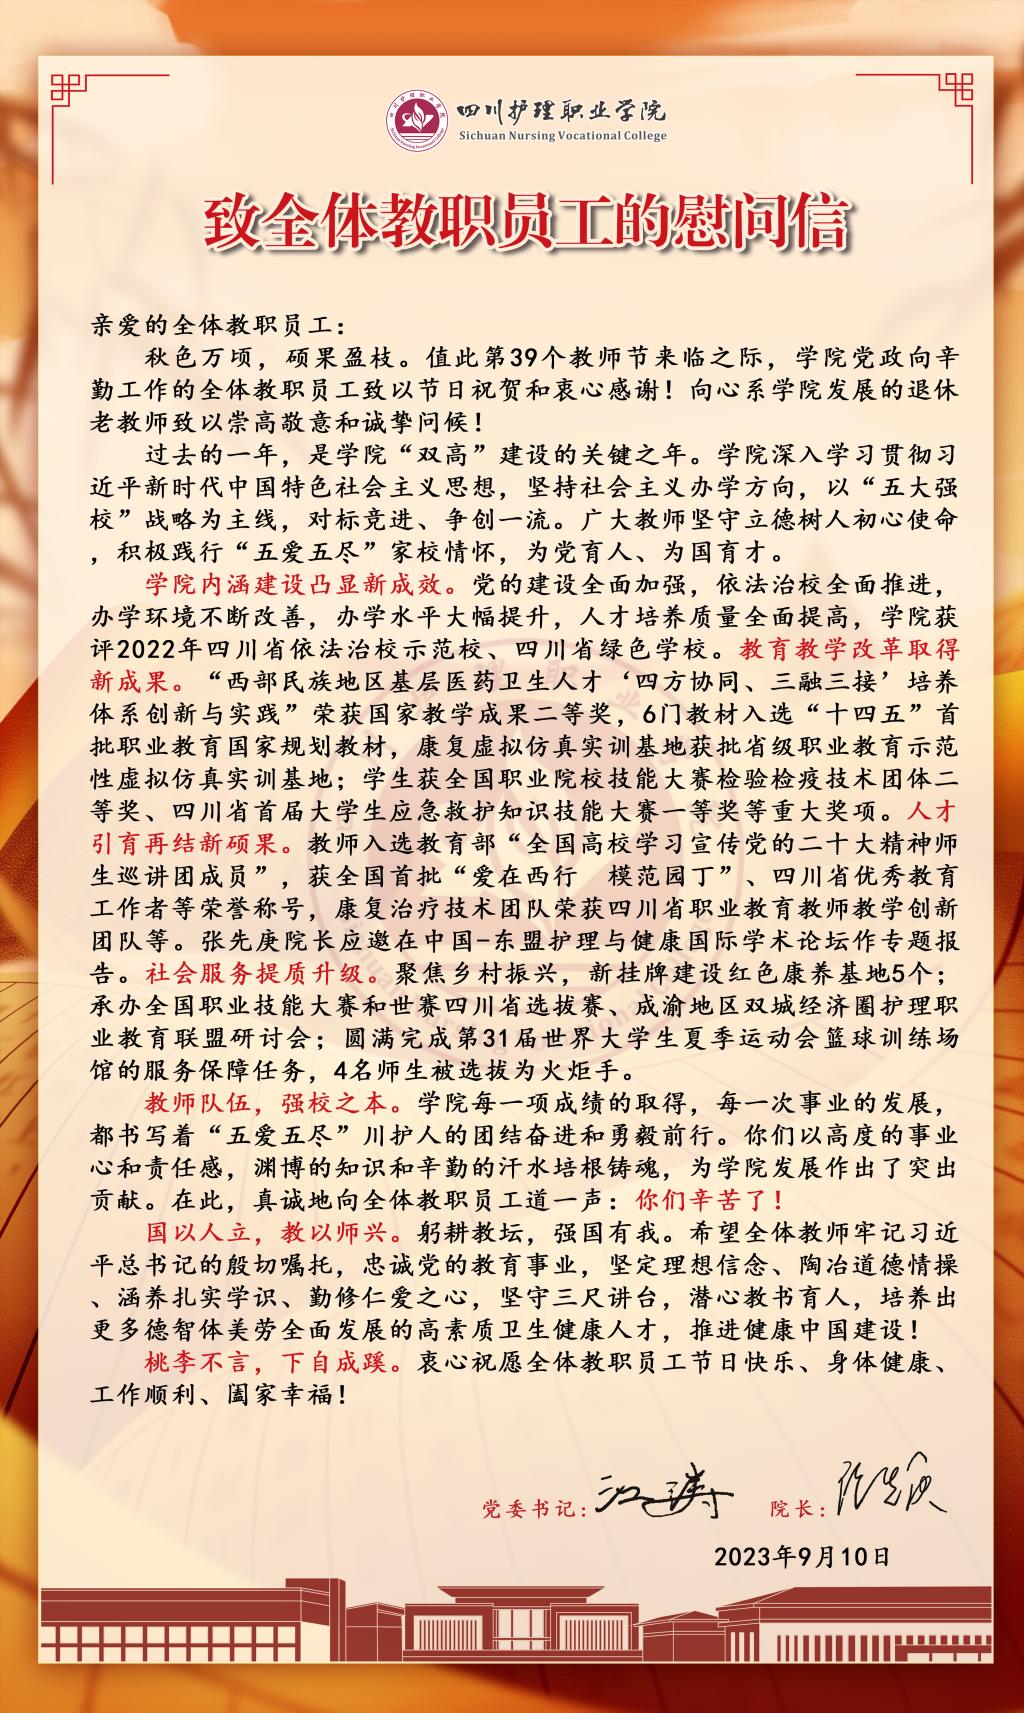 四川护理职业学院
Sichuan Nursing Vocational College
致全体教职员工的慰问信
亲爱的全体教职员工：
秋色万顷，硕果盈枝。值此第39个教师节来临之际，学院党政向辛
勤工作的全体教职员工致以节日祝贺和衷心感谢！向心系学院发展的退休
老教师致以崇高敬意和诚挚问候！
过去的一年，是学院“双高”建设的关键之年。学院深入学习贯彻习
近平新时代中国特色社会主义思想，坚持社会主义办学方向，以“五大强
校”战略为主线，对标竞进、争创一流。广大教师坚守立德树人初心使命
，积极践行“五爱五尽”家校情怀，为党育人、为国育才。
学院内涵建设凸显新成效。党的建设全面加强，依法治校全面推进，
办学环境不断改善，办学水平大幅提升，人才培养质量全面提高，学院获
评2022年四川省依法治校示范校、四川省绿色学校。教育教学改革取得
新成果。“西部民族地区基层医药卫生人才‘四方协同、三融三接’培养
体系创新与实践”荣获国家教学成果二等奖，6门教材入选“十四五”首
批职业教育国家规划教材，康复虚拟仿真实训基地获批省级职业教育示范
性虚拟仿真实训基地；学生获全国职业院校技能大赛检验检疫技术团体二
等奖、四川省首届大学生应急救护知识技能大赛一等奖等重大奖项。人才
引育再结新硕果。教师入选教育部“全国高校学习宣传党的二十大精神师
生巡讲团成员”，获全国首批“爱在西行　模范园丁”、四川省优秀教育
工作者等荣誉称号，康复治疗技术团队荣获四川省职业教育教师教学创新
团队等。张先庚院长应邀在中国-东盟护理与健康国际学术论坛作专题报
告。社会服务提质升级。聚焦乡村振兴，新挂牌建设红色康养基地5个；
承办全国职业技能大赛和世赛四川省选拔赛、成渝地区双城经济圈护理职
业教育联盟研讨会；圆满完成第31届世界大学生夏季运动会篮球训练场
馆的服务保障任务，4名师生被选拔为火炬手。
教师队伍，强校之本。学院每一项成绩的取得，每一次事业的发展，
都书写着“五爱五尽”川护人的团结奋进和勇毅前行。你们以高度的事业
心和责任感，渊博的知识和辛勤的汗水培根铸魂，为学院发展作出了突出
贡献。在此，真诚地向全体教职员工道一声：你们辛苦了！
国以人立，教以师兴。躬耕教坛，强国有我。希望全体教师牢记习近
平总书记的殷切嘱托，忠诚党的教育事业，坚定理想信念、陶冶道德情操
、涵养扎实学识、勤修仁爱之心，坚守三尺讲台，潜心教书育人，培养出
更多德智体美劳全面发展的高素质卫生健康人才，推进健康中国建设！
桃李不言，下自成蹊。衷心祝愿全体教职员工节日快乐、身体健康、
工作顺利、阖家幸福！
党委书记：江涛 院长：张先庚
2023年9月10日